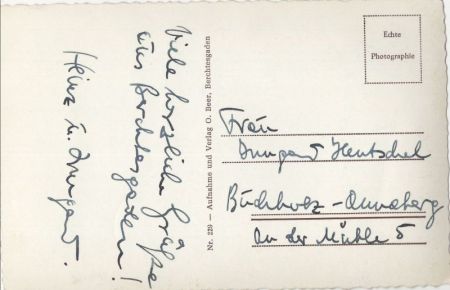 Viele herzliche Grüße
aus Berchtesgaden!
Heinz u. Irmgard.
Nr. 229 — Aufnahme und Verlag O. Beer, Berchtesgaden
Echte
Photographie
Frau
Irmgard Hentschel
Buchholz-Annaberg
An der Mühle 5